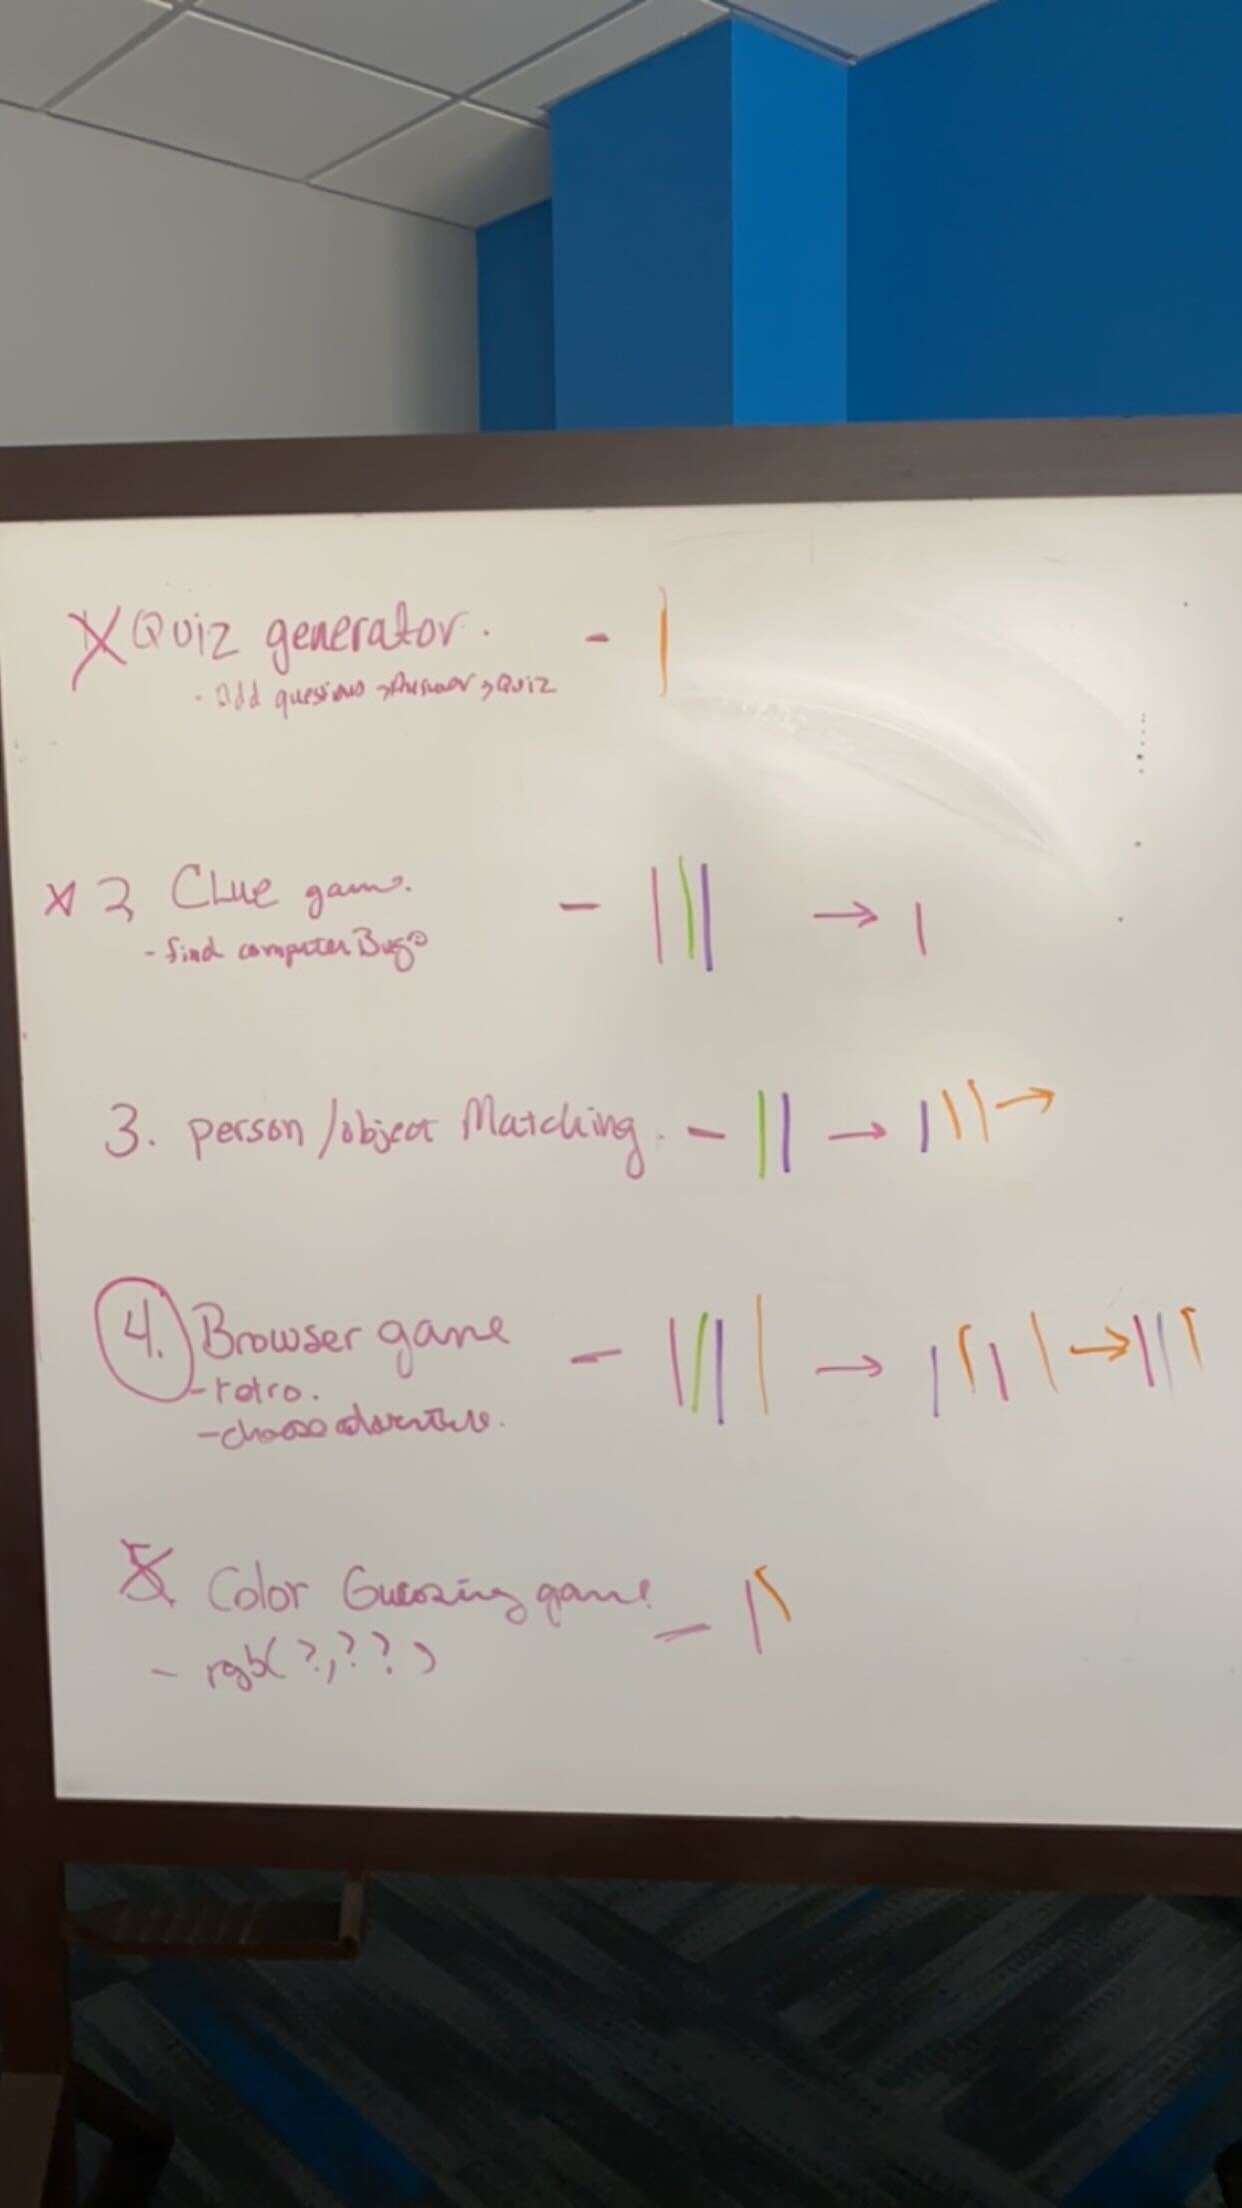 X Quiz generator. -
- Add questions → Answer → Quiz
2 Clue game. - →
- find computer Bugs
3. person/object Matching. - → →
4. Browser game - → →
- retro.
- choose adventure.
5. Color Guessing game -
- rgb(?,??)